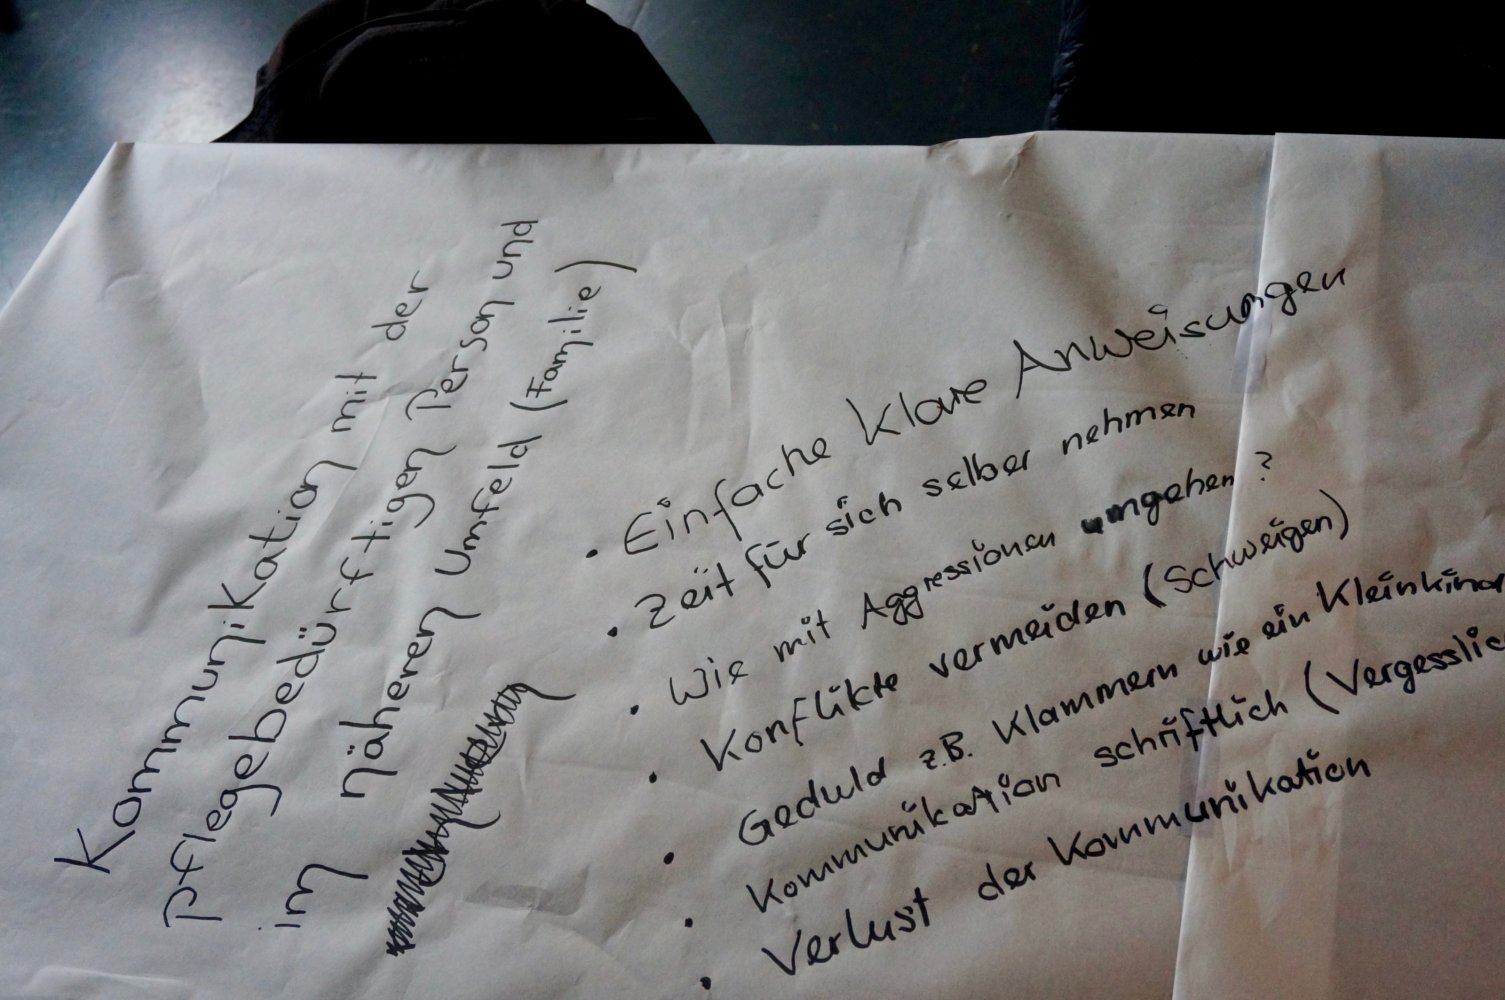 Kommunikation mit der
pflegebedürftigen Person und
im näheren Umfeld (Familie)
• Einfache klare Anweisungen
• Zeit für sich selber nehmen
• Wie mit Aggressionen umgehen?
• Konflikte vermeiden (Schweigen)
• Geduld z.B. Klammern wie ein Kleinkind
• Kommunikation schriftlich (Vergesslic
• Verlust der Kommunikation